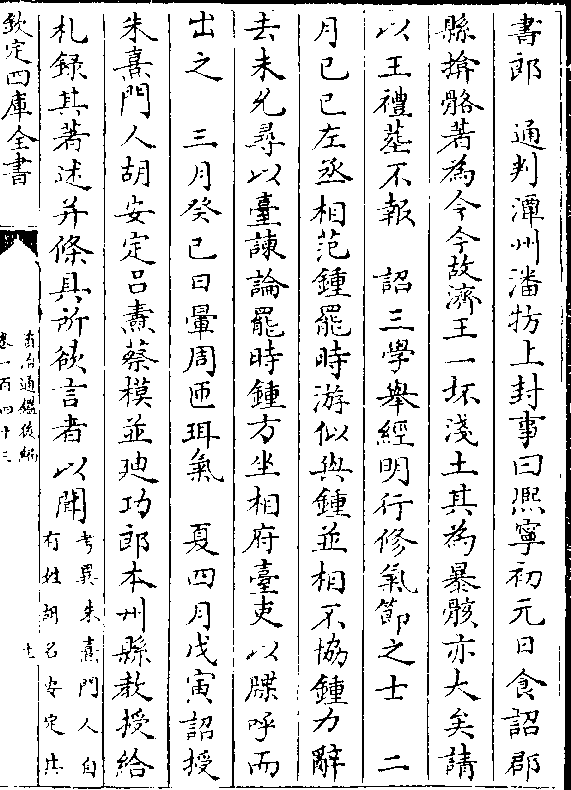 書郎　通判潭州潘牥上封事曰熈寧初元日食詔郡
縣揜骼著為令今故濟王一抔淺土其為暴骸亦大矣請
以王禮塟不報　詔三學舉經明行修氣節之士　二
月已已左丞相范鍾罷時游似與鍾並相不協鍾力辭
去未允尋以臺諫論罷時鍾方坐相府臺吏以牒呼而
出之　三月癸已日暈周匝珥氣　夏四月戊寅詔授
朱熹門人胡安定吕燾蔡模並廸功郎本州縣教授給
札録其著述并條具所欲言者以聞考異朱熹門人自
有姓胡名安定共
欽定四庫全書
資治通鑑後編
卷一百四十三
七